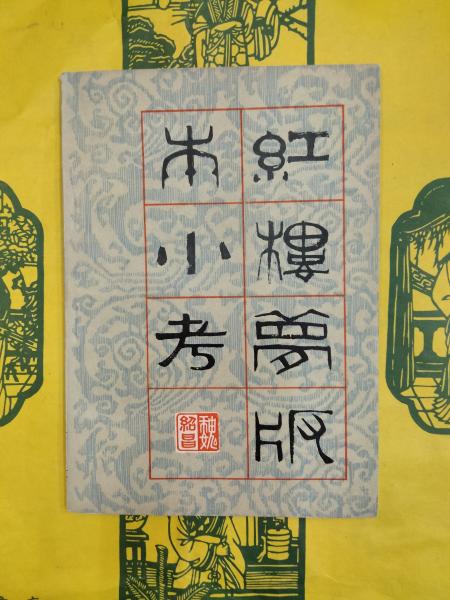 紅樓夢版
本小考
魏紹昌